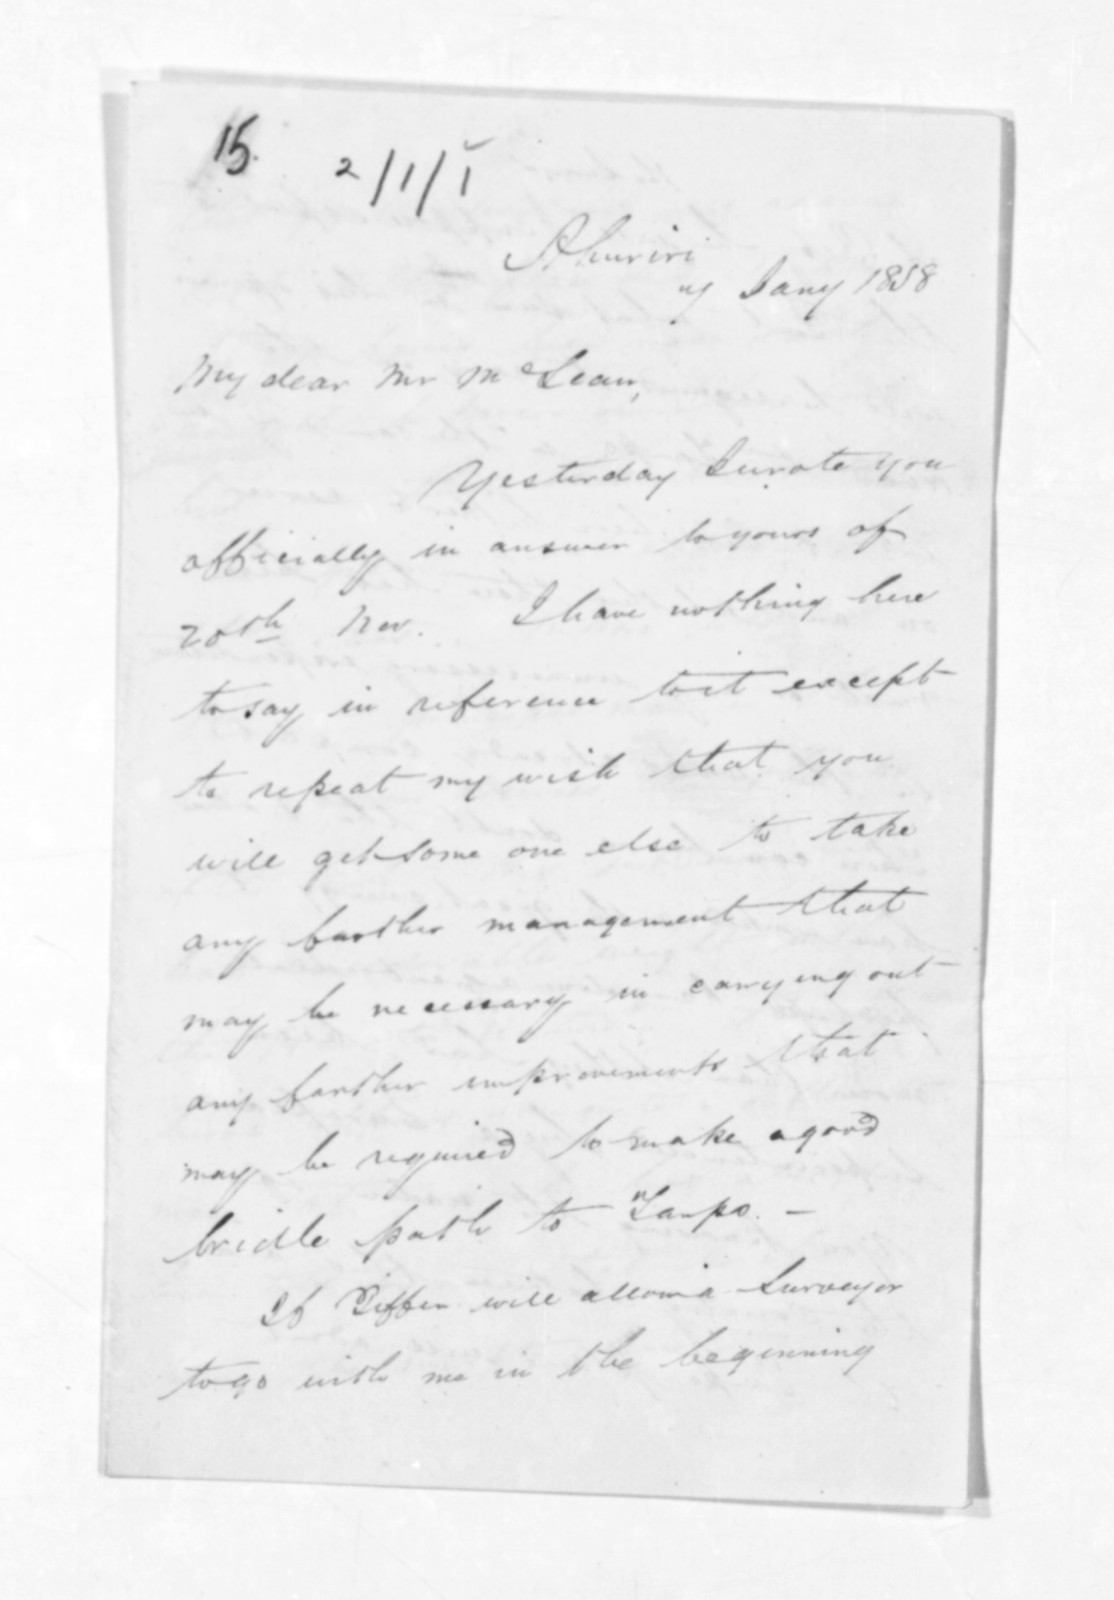 15.
2/1/1
Ahuriri
Jany 1858
My dear Mr McLean,
Yesterday I wrote you
officially in answer to yours of
20th Nov. I have nothing here
to say in reference to it except
to repeat my wish that you
will get some one else to take
any farther management that
may be necessary in carrying out
any farther improvements that
may be required to make a good
bridle path to Taupo. -
If Tiffen will allow a Surveyor
to go with me in the beginning